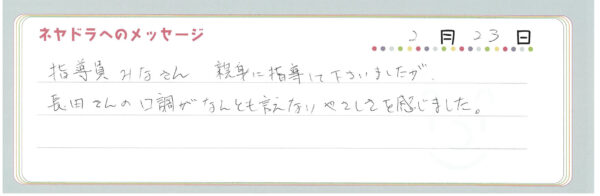 ネヤドラへのメッセージ
2月23日
指導員みなさん 親身に指導して下さいましたが、
長田さんの口調がなんとも言えないやさしさを感じました。